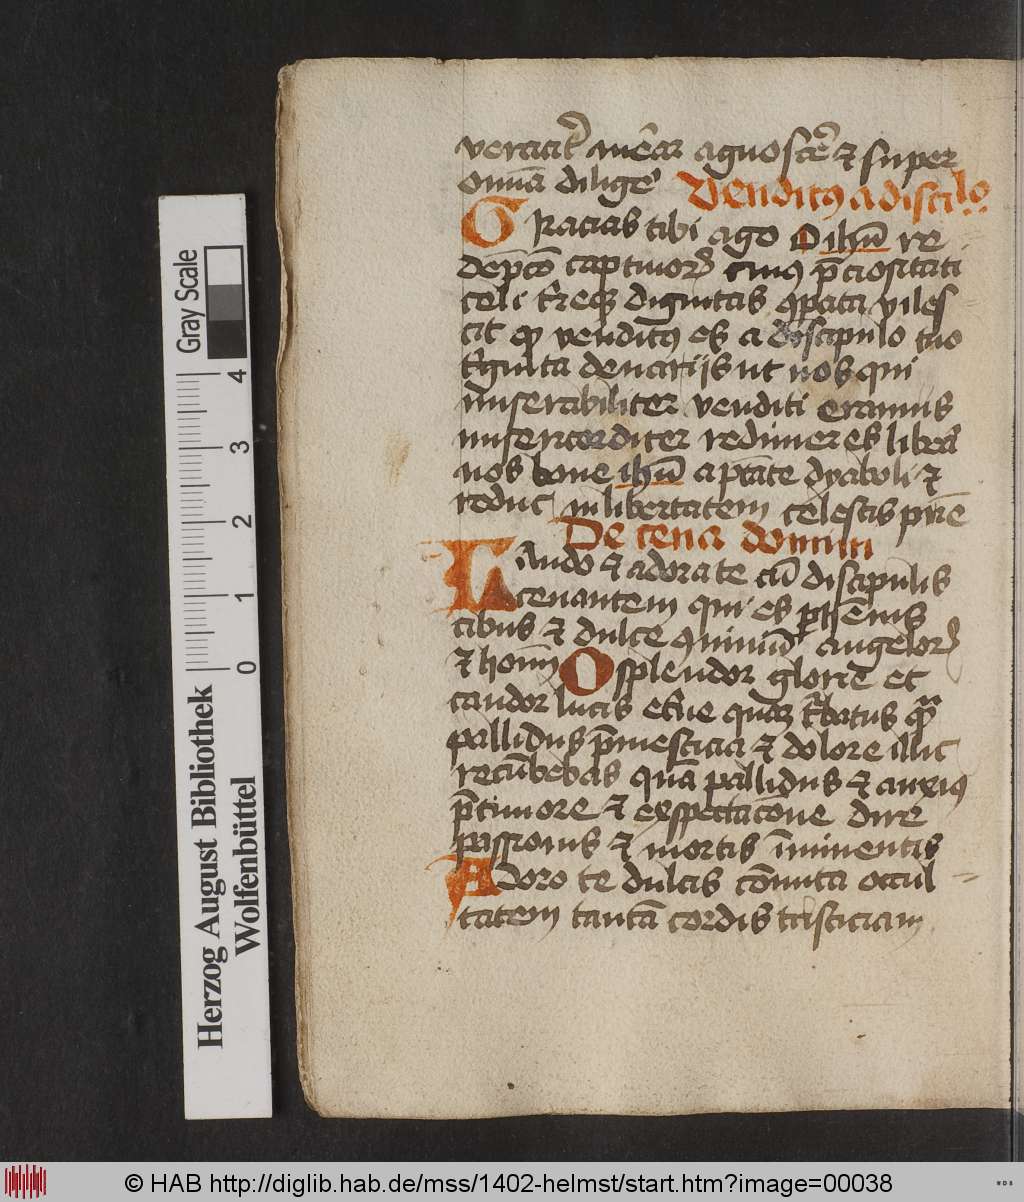 veraciter merear agnoscere et super
omnia diligere Venditus a discilo
Gracias tibi ago o ihesu re
demptor captiuorum cuius preciositati
celi terreque dignitas comparata viles
cit quod venditus es a discipulo tuo
triginta denarijs ut nos qui
miserabiliter venditi eramus
misericorditer redimeres libera
nos bone ihesu a potestate dyaboli et
reduc in libertatem celestis patrie
De cena domini
Laudo et adoro te cum discipulis
cenantem qui es presens
cibus et dulce conuiuium angelorum
et hominum O splendor glorie et
candor lucis eterne quam turbatus quam
pallidus pre mesticia et dolore illic
recumbebas quam pallidus et anxius
pre timore et exspectacione dire
passionis et mortis imminentis
Adoro te dulcis conuiua occul
tatem tantam cordis tristiciam
Gray Scale
4
3
2
1
0
Herzog August Bibliothek
Wolfenbüttel
© HAB http://diglib.hab.de/mss/1402-helmst/start.htm?image=00038